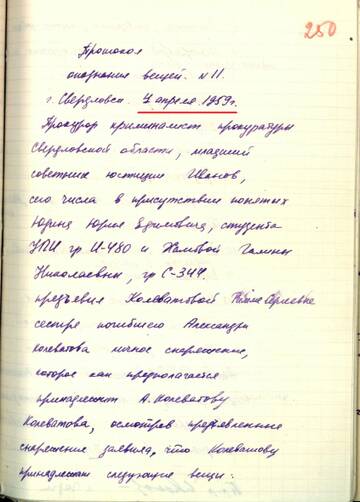 250
Протокол
опознания вещей. N 11.
г. Свердловск. 7 апреля 1959г.
Прокурор криминалист прокуратуры
Свердловской области, младший
советник юстиции Иванов,
сего числа в присутствии понятых
Юдина Юрия Ефимовича, студента
УПИ гр И-480 и Хамовой Галины
Николаевны, гр С-344.
предъявил Колеватовой Римме Сергеевне
сестре погибшего Александра
Колеватова личное снаряжение,
которое как предполагается
принадлежит А. Колеватову
Колеватова, осмотрев предъявленные
снаряжение заявила, что Колеватову
принадлежат следующие вещи: